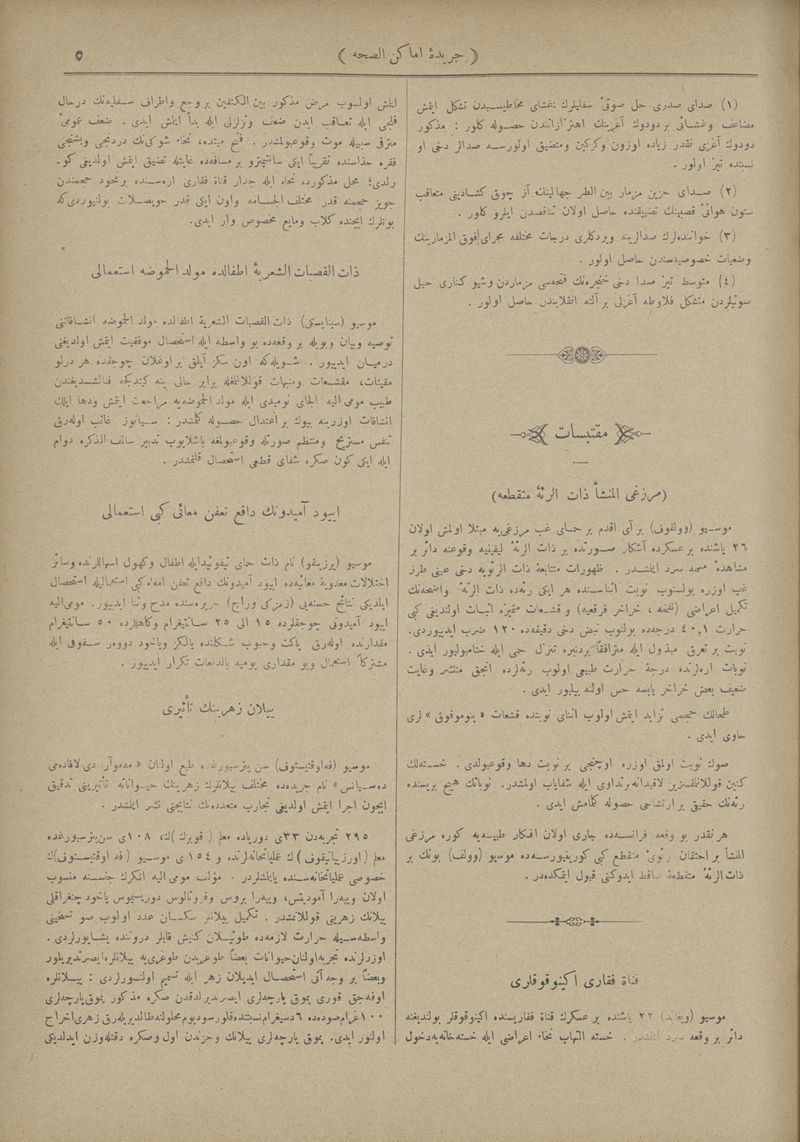 ﴿ جريدهٔ اماكن الصحه ﴾
٥
(١) صدای صدری حبل صوتیٔ سفلیلرك غشای مخاطیسیدن تشكل ایتمش
مضاعف وغشائی بردودوك آغزینك اهتزازاتندن حصوله كلور : مذكور
دودوك آغزی نقدر زیاده اوزون وكركین ومتضیق اولورسه صدالر دخی او
نسبتده تیز اولور .
(٢) صدای حزین مزمار بین الطرجهالینك از چوق كشادینی متعاقب
ستون هوائی قصبینك تضییقنده حاصل اولان تناقصدن ایلرو كلور .
(٣) خواننده‌لرك صدالرینه ویردكلری درجات مختلفه مجرای فوق المزمارینك
وضعیات خصوصیه‌سندن حاصل اولور .
(٤) متوسط تیز صدا دخی حنجره‌نك فتحه‌سی مزماردن وشیو كناری حبل
صوتیلردن متشكل فلاوطه آغزلی بر آلته انقلابندن حاصل اولور .
مقتبسات
(مرزغی المنشأ ذات الرئهٔ متقطعه)
موسیو (وولفوف) بر آی اقدم بر حمای غب مرزغی‌یه مبتلا اولمش اولان
٢٦ یاشنده بر عسكرده آشكار صورتده بر ذات الرئهٔ لیفینیه وقوعنه دائر بر
مشاهدهٔ مهمه سرد ایلمشدر . ظهورات متتابعهٔ ذات الرئویه دخی عینی طرز
غب اوزره بولنوب نوبت اثناسنده هر ایكی رئه‌ده ذات الرئهٔ واضحه‌نك
تكمیل اعراضی (نفخه ، خراخر فرقعیه) وقشعات ممیزه اثبات اولندیغی كبی
حرارت ٤٠,١ درجه‌ده بولنوب نبض دخی دقیقه‌ده ١٢٠ ضرب ایدییوردی.
نوبت بر تعرق مبذول ایله مترافقاً بردنبره تنزل حمی ایله ختامبولیور ایدی .
نوبات ارەلرنده درجهٔ حرارت طبیعی اولوب رئه‌لرده انجق منتشر وغایت
ضعیف بعض خراخر یابسه حس اولنه بیلیور ایدی .
طحالك حجمی تزاید ایتمش اولوب اثنای نوبتده قشعات « پنوموقوق » لری
حاوی ایدی .
صوك نوبت اولمق اوزره اوچنجی بر نوبت دها وقوعبولدی . خسته‌لك
كنین قوللانلمقسزین لاقیدانه‌برتداوی ایله شفایاب اولمشدر. نوباتك هیچ بریسنده
رئه‌نك حقیقی بر ارتشاحی حصوله كلمامش ایدی .
هر نقدر بو وقعه فرانسه‌ده جاری اولان افكار طبیه‌یه كوره مرزغی
المنشأ بر احتقان رئوی‌ٔ متقطع كبی كورینیورسه‌ده موسیو (وولف) بونك بر
ذات الرئهٔ متقطعهٔ ساقط ایدوكنی قبول ایتمكده‌در.
قناة فقاری اكینوقوقلری
بر عسكرك قناة فقاریسنده اكینوقوقلر بولندیغنه
دائر بر وقعه سرد ایتمشدر . خسته التهاب نخاع اعراضی ایله خسته‌خانه‌یه‌دخول
ایتمش اولوب مرض مذكور بین الكتفین بر وجع واطراف سفلیه‌نك درحال
فلجی ایله تعاقب ایدن ضعف وتزلزلی ایله بدأ ایتمش ایدی . ضعف عمومیٔ
مترقی سببیله موت وقوعبولمشدر . فتح میتده، نخاع شوكی‌نك دردنجی وبشنجی
فقره حذاسنده تقریباً ایكی سانتیمترو بر مسافه‌ده غایتله تضییق ایتمش اولدیغی كو-
رلدی؛ محل مذكورده نخاع ایله جدار قناة فقاری ارەسنده برنخود حجمندن
جویز حجمنه قدر مختلف الجسامه واون ایكی قدر حویصلات بولنیوردی‌كه
بونلرك ایچنده كلاب ومایع مخصوص وار ایدی.
ذات القصبات الشعریهٔ اطفالده مولد الحموضه استعمالی
موسیو (سینایسكی) ذات القصبات الشعریهٔ اطفالده مولد الحموضه انشاقاتنی
توصیه وبیان وبویله بر وقعه‌ده بو واسطه ایله استحصال موفقیت ایتمش اولدیغنی
درمیان ایدییور . شویله‌كه اون سكز آیلق بر اوغلان چوجقده هر درلو
مقیئات، مقشعات ومنبهات قوللانلمغله برابر حالی ینه كیتدكجه فنالشدیغندن
طبیب مومی الیه الجای نومیدی ایله مولد الحموضه‌یه مراجعت ایتمش ودها ایلك
انشاقات اوزرینه بیوك بر اعتدال حصوله كلمشدر : سیانوز غائب اوله‌رق
تنفس مستریح ومنتظم صورتله وقوعبولمغه باشلایوب تدبیر سالف الذكره دوام
ایله ایكی كون صكره شفای قطعی استحصال قلنمشدر .
اییود آمیدونك دافع تعفن معائی كبی استعمالی
موسیو (پرزینقو) نام ذات حمای تیفوئیدایله اطفال وكهول اسهاللرنده وسائر
اختلالات معدویهٔ معائیه‌ده اییود آمیدونك دافع تعفن امعاء كبی استعمالیله استحصال
ایلدیكی نتایج حسنه‌یی جریده‌سنده مدح وثنا ایدییور. مومی‌الیه
اییود آمیدونی چوجقلرده ١٥ الی ٢٥ سانتیغرام وكاهللرده ٥٠ سانتیغرام
مقدارنده اوله‌رق پاكت وحبوب شكلنده یالكز ویاخود دوور سفوفی ایله
مشتركاً استعمال وبو مقداری یومیه بالدفعات تكرار ایدییور .
ییلان زهرینك تأثیری
موسیو (قه‌اوقتیستوف) سن پترسبورغده طبع اولنان « مه‌موآر دی‌لاقاده‌می
ده‌سیانس » نام جریده‌ده مختلف ییلانلرك زهرینك حیواناته تأثیرینی تدقیق
ایچون اجرا ایتمش اولدیغی تجارب متعدده‌نك نتایجنی نشر ایلمشدر .
٢٩٥ تجربه‌دن ٣٣ی دوریاده معلم (قوبرك)ك، ١٠٨ی سن‌پترسبورغده
معلم (اورزیانیقوف)ك عملیاتخانه‌لرنده و ١٥٤ی موسیو (قه اوقتیستوف)ك
خصوصی عملیاتخانه‌سنده یاپلمشلردر . مؤلف مومی الیه انكرك جنسنه منسوب
اولان ویپه‌را آمودیتس، ویپه‌را بروس وقروتالوس دوریسموس یاخود چنغراقلی
ییلانك زهرینی قوللانمشدر . تكمیل ییلانلر سكسان عدد اولوب صو تسخینی
واسطه‌سیله حرارت لازمه‌ده طوتیلان كنیش قابلر دروننده یشایورلردی .
اوزرلرنده تجربه‌اولنان‌حیوانات بعضاً طوغریدن طوغری‌یه ییلانه‌ایصرتدیریلور
وبعضاً بر وجه آتی استحصال ایدیلان زهر ایله تسمیم اولنورلردی : ییلانلره
اوفه‌جق قوری پموق پارچه‌لری ایصرتدیرلدقدن صكره مذكور پموق‌پارچه‌لری
١٠٠غرام‌صوده‌ده ٦ دسیغرام‌نسبتنده قلورسودیوم محلولنه طالدیریله‌رق زهری‌اخراج
اولنور ایدی. پموق پارچه‌لری ییلانك وخزندن اول وصكره دقتله‌وزن ایدلدیكی